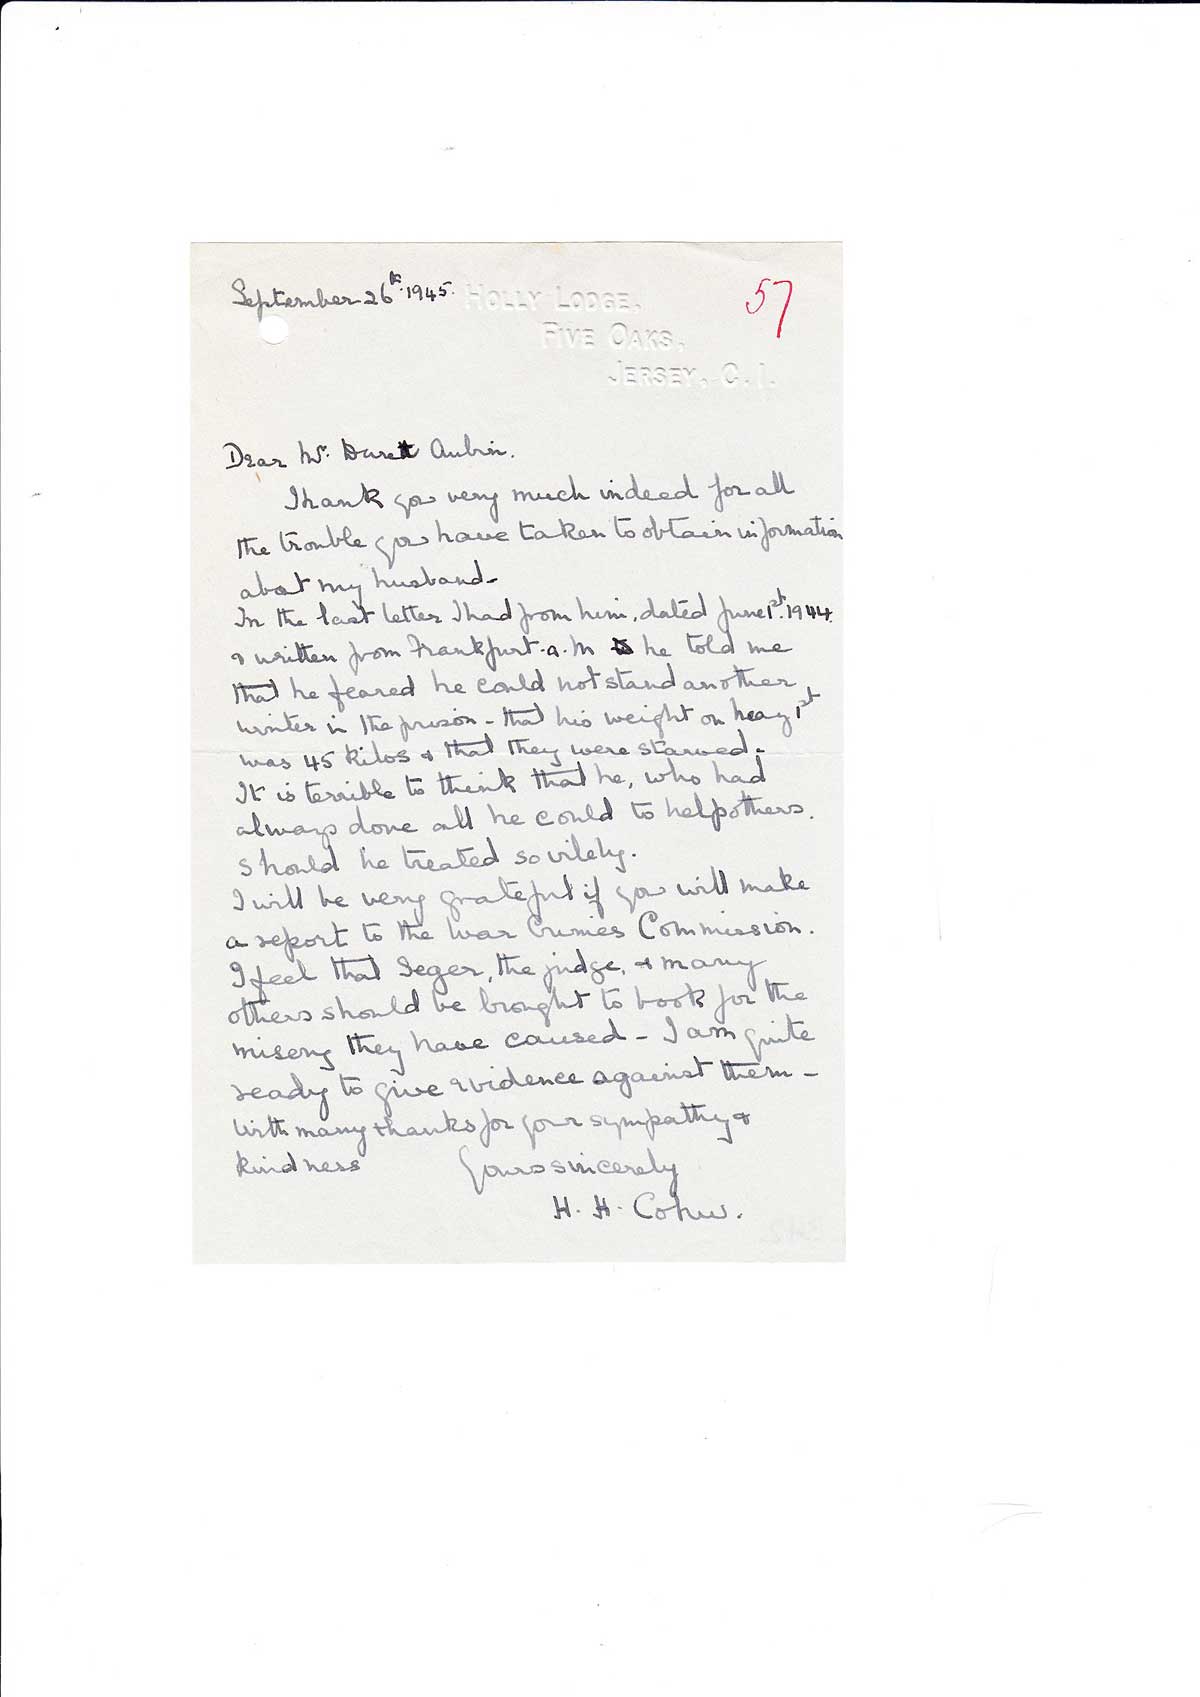 September 26th. 1945.
HOLLY LODGE,
FIVE OAKS,
JERSEY, C.I.
57
Dear Mr. Durett Aubin.
Thank you very much indeed for all
the trouble you have taken to obtain information
about my husband -
In the last letter I had from him, dated June 1st. 1944.
& written from Frankfurt. a. M he told me
that he feared he could not stand another
winter in the prison - that his weight on May 1st
was 45 kilos & that they were starved -
It is terrible to think that he, who had
always done all he could to help others.
should be treated so vilely.
I will be very grateful if you will make
a report to the War Crimes Commission.
I feel that Jeger, the judge, & many
others should be brought to book for the
misery they have caused - I am quite
ready to give evidence against them -
With many thanks for your sympathy &
kindness
Yours sincerely
H. H. Cohu.